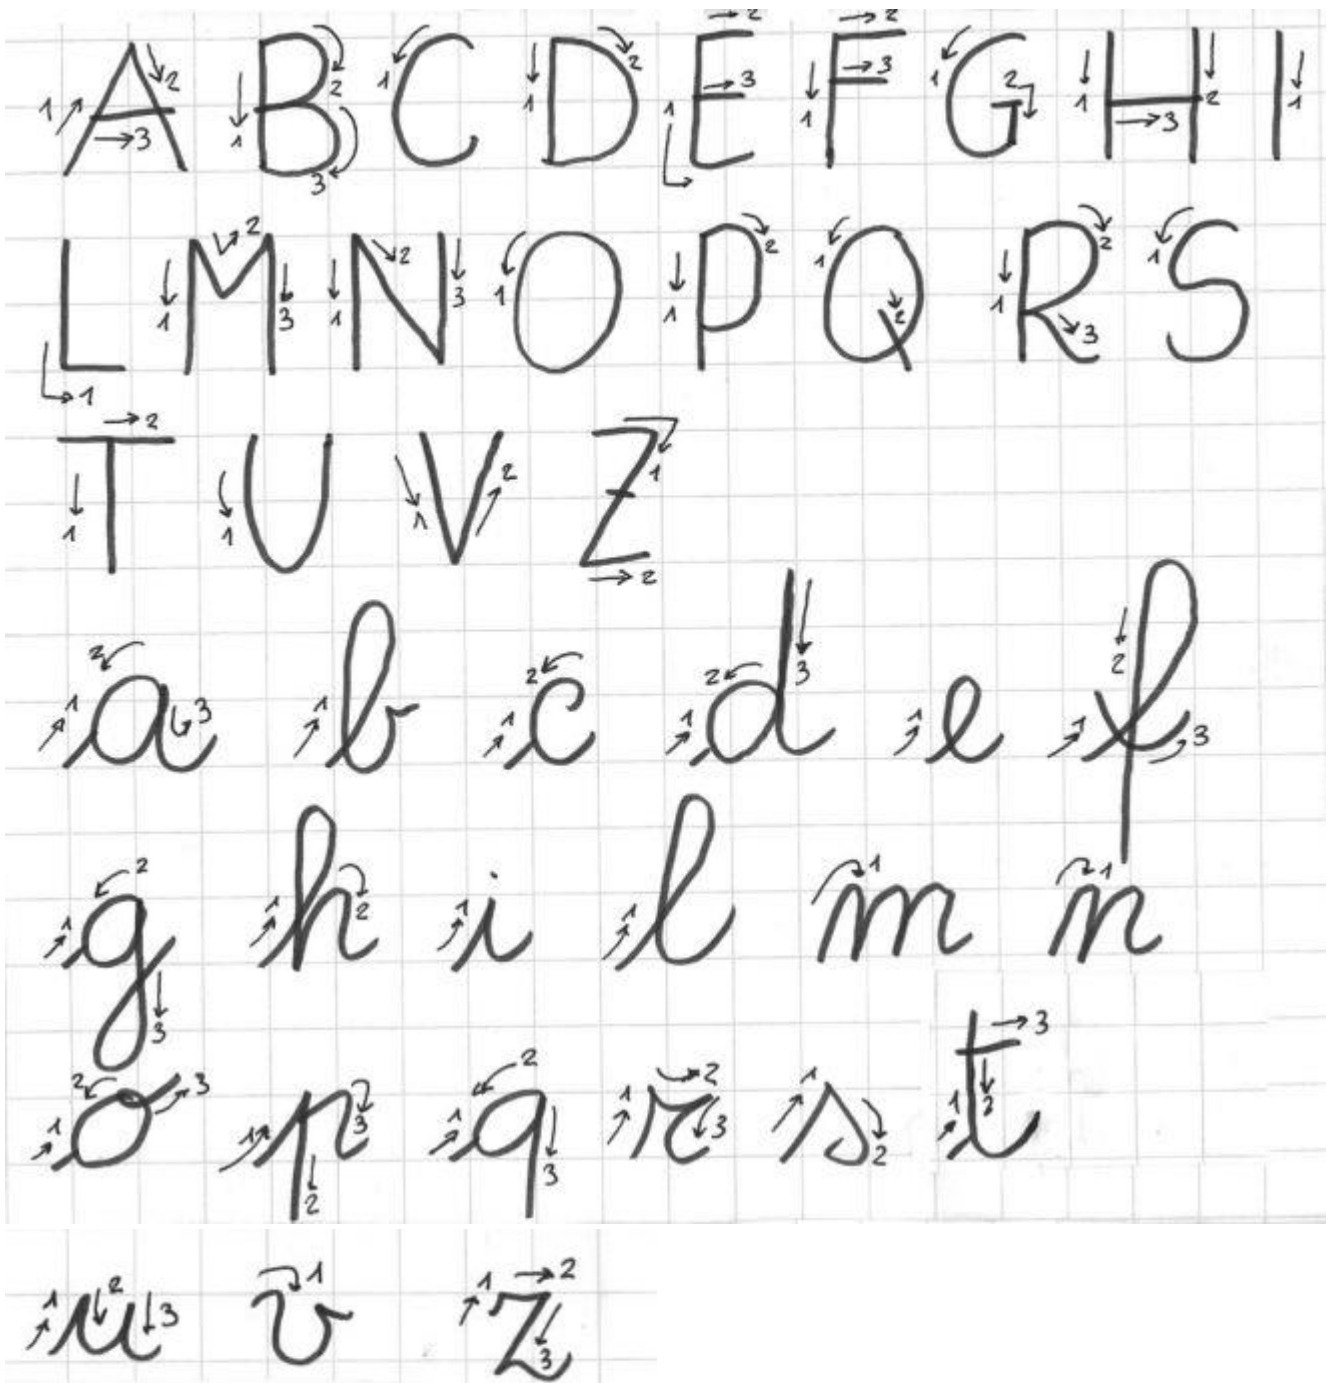 A B C D E F G H I
L M N O P Q R S
T U V Z
a b c d e f
g h i l m n
o p q r s t
u v z